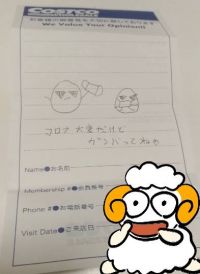 COSTCO
お客様の御意見を大切に致しております
We Value Your Opinion!!
コロナ 大変だけど
ガンバってねっ
Name●お名前
Membership #●会員番号
Phone #●お電話番号
Visit Date●ご来店日